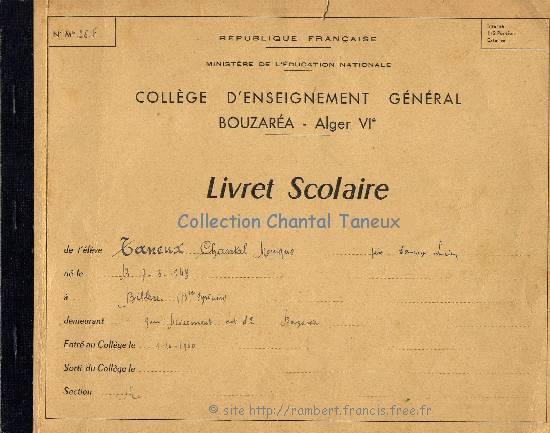 N° Mle 26 F
Interne
1/2 Pension
Externe
RÉPUBLIQUE FRANÇAISE
MINISTÈRE DE L'ÉDUCATION NATIONALE
COLLÈGE D'ENSEIGNEMENT GÉNÉRAL
BOUZARÉA - Alger VIe
Livret Scolaire
Collection Chantal Taneux
de l'élève Taneux Chantal Monique
né le
à Billère
demeurant Bouzarea
Entré au Collège le
Sorti du Collège le
Section
© site http://rambert.francis.free.fr